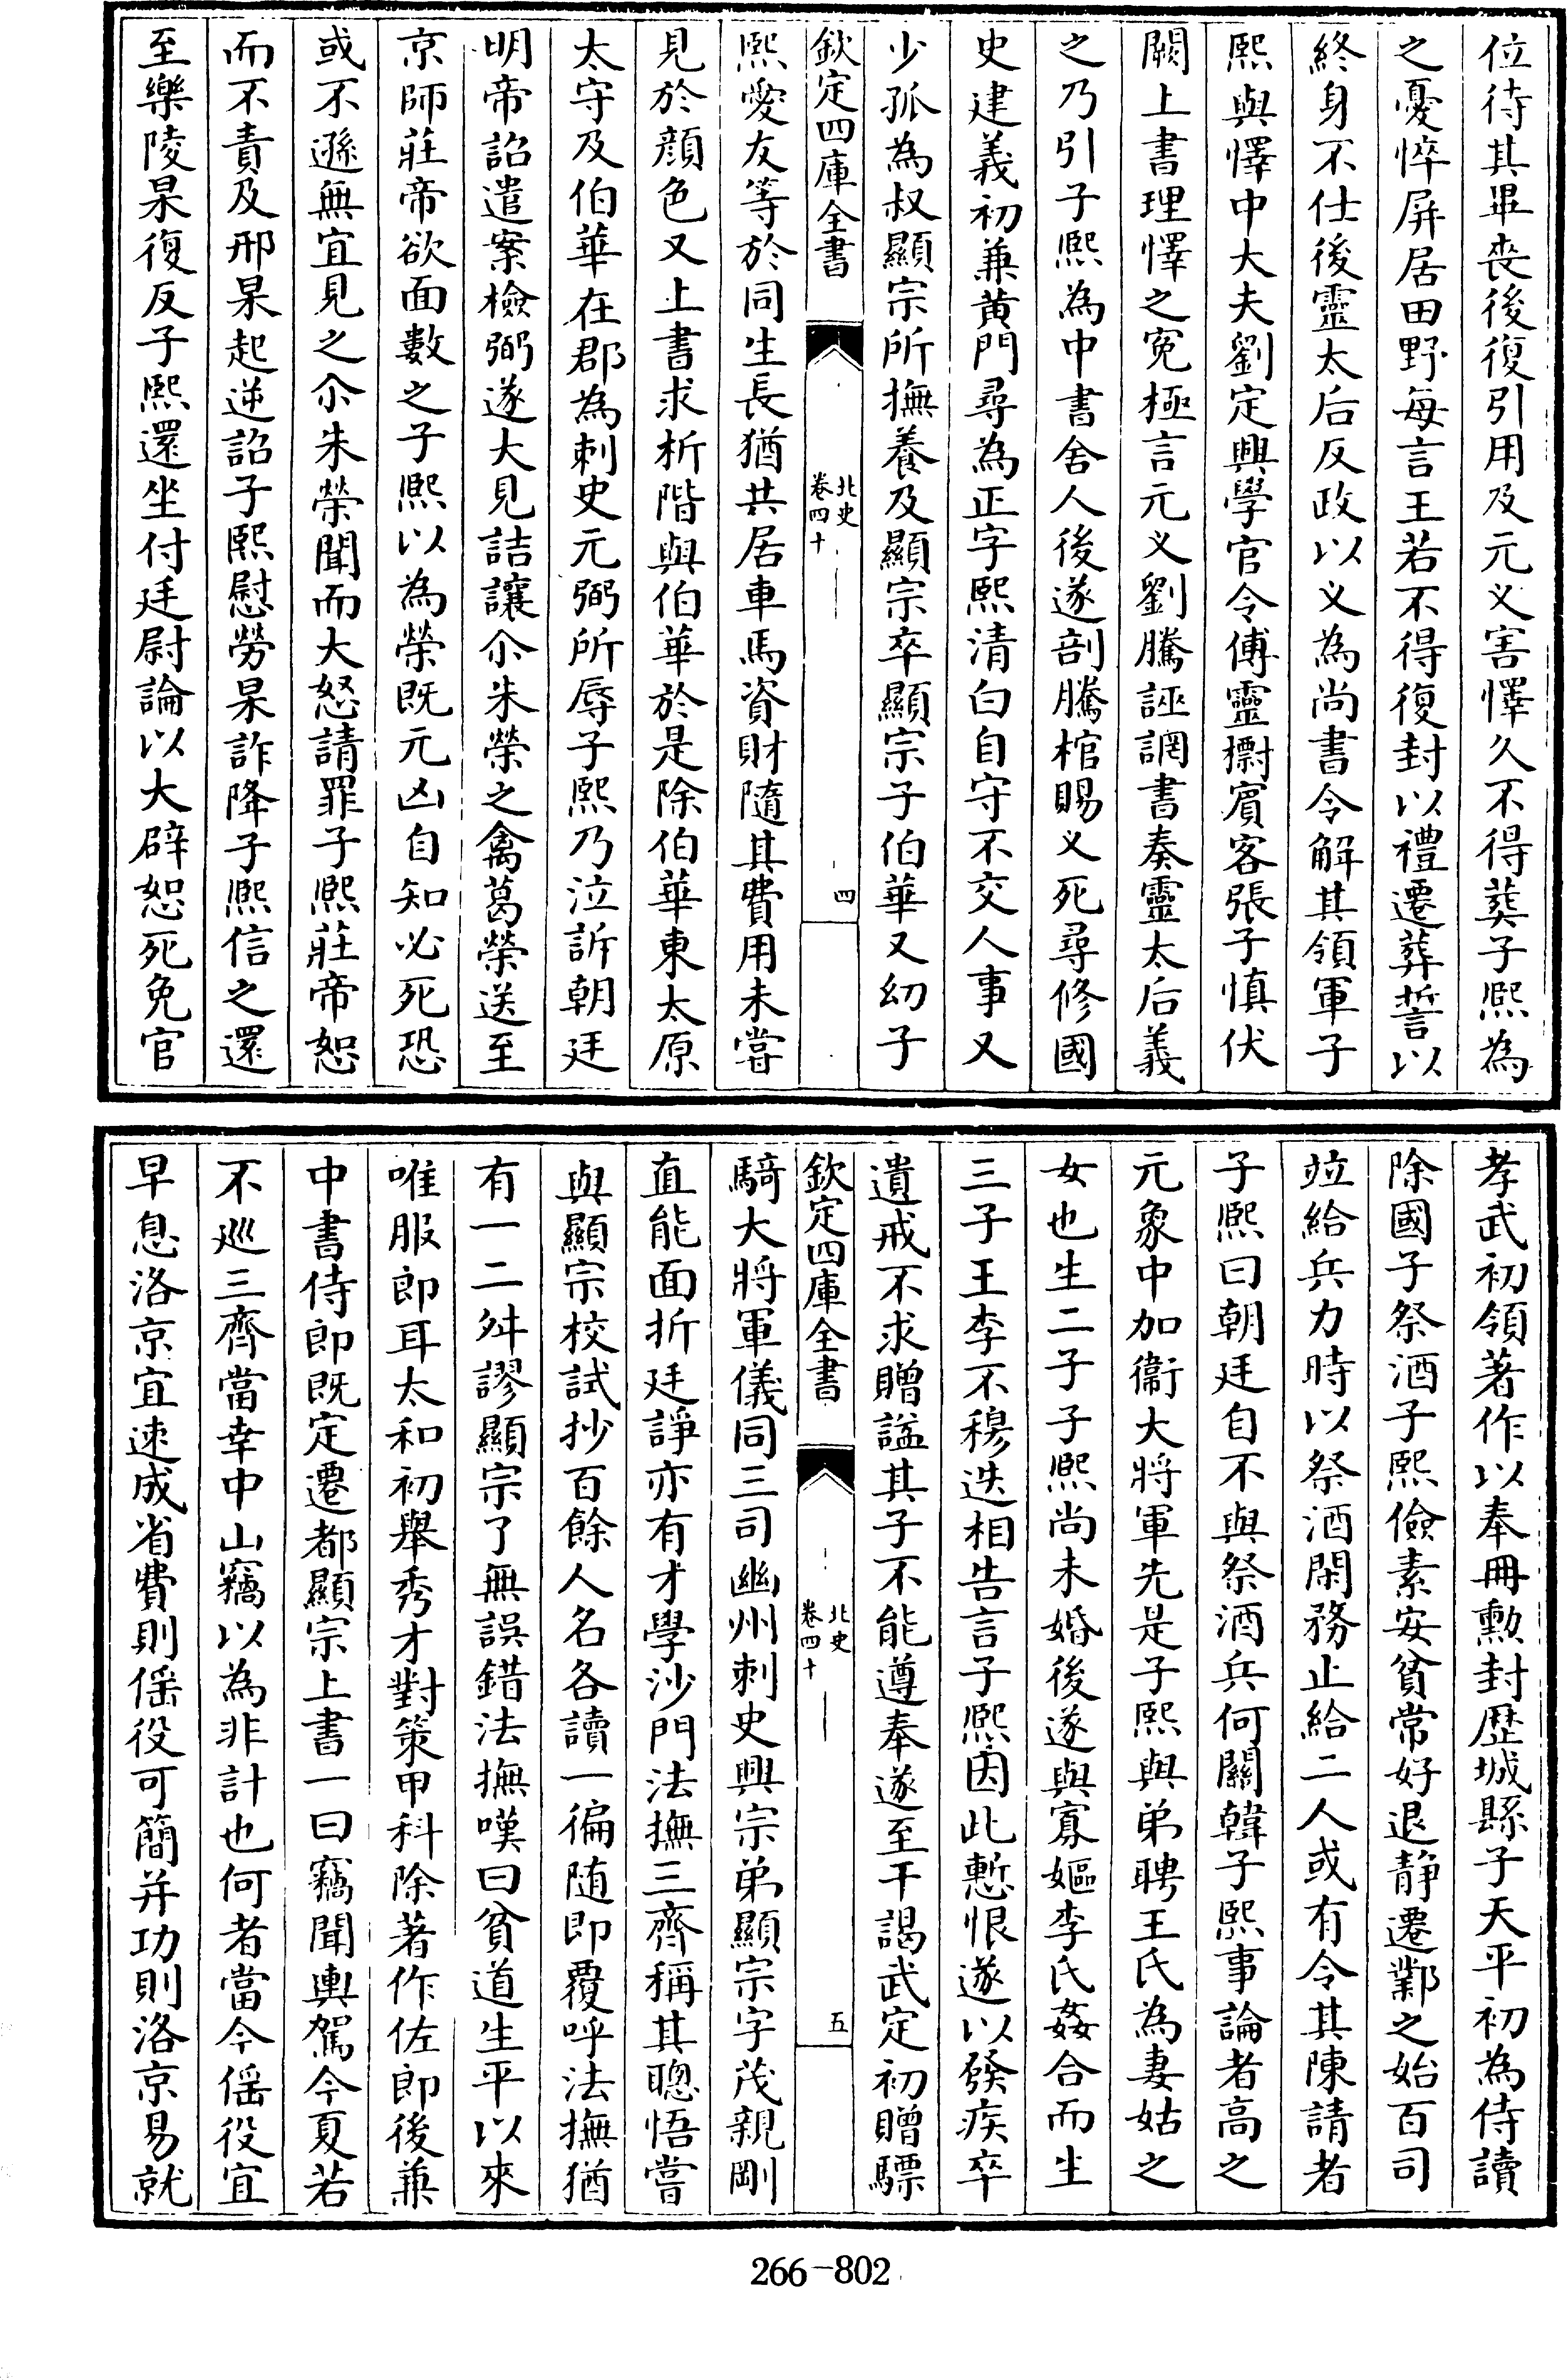 位待其畢喪後復引用及元义害懌久不得葬子熙為
之憂悴屏居田野每言王若不得復封以禮遷葬誓以
終身不仕後靈太后反政以义為尚書令解其領軍子
熙與懌中大夫劉定興學官令傅靈㩳賓客張子慎伏
闕上書理懌之寃極言元义劉騰誣誷書奏靈太后義
之乃引子熙為中書舍人後遂剖騰棺賜义死尋修國
史建義初兼黄門尋為正字熙清白自守不交人事又
少孤為叔顯宗所撫養及顯宗卒顯宗子伯華又幼子
欽定四庫全書
北史
卷四十
四
熙愛友等於同生長猶共居車馬資財隨其費用未嘗
見於顔色又上書求析階與伯華於是除伯華東太原
太守及伯華在郡為刺史元弼所辱子熙乃泣訴朝廷
明帝詔遣案檢弼遂大見詰讓尒朱榮之禽葛榮送至
京師莊帝欲面數之子熙以為榮既元凶自知必死恐
或不遜無宜見之尒朱榮聞而大怒請罪子熙莊帝恕
而不責及邢杲起逆詔子熙慰勞杲詐降子熙信之還
至樂陵杲復反子熙還坐付廷尉論以大辟恕死免官
孝武初領著作以奉冊勲封歴城縣子天平初為侍讀
除國子祭酒子熙儉素安貧常好退靜遷鄴之始百司
竝給兵力時以祭酒閑務止給二人或有令其陳請者
子熙曰朝廷自不與祭酒兵何關韓子熙事論者高之
元象中加衞大將軍先是子熙與弟聘王氏為妻姑之
女也生二子子熙尚未婚後遂與寡嫗李氏姦合而生
三子王李不穆迭相告言子熙因此慙恨遂以發疾卒
遺戒不求贈謚其子不能遵奉遂至干謁武定初贈驃
欽定四庫全書
北史
卷四十
五
騎大將軍儀同三司幽州刺史興宗弟顯宗字茂親剛
直能面折廷諍亦有才學沙門法撫三齊稱其聰悟嘗
與顯宗校試抄百餘人名各讀一徧随即覆呼法撫猶
有一二舛謬顯宗了無誤錯法撫嘆曰貧道生平以來
唯服郎耳太和初舉秀才對策甲科除著作佐郎後兼
中書侍郎既定遷都顯宗上書一曰竊聞輿駕今夏若
不廵三齊當幸中山竊以為非計也何者當今徭役宜
早息洛京宜速成省費則徭役可簡并功則洛京易就
266-802